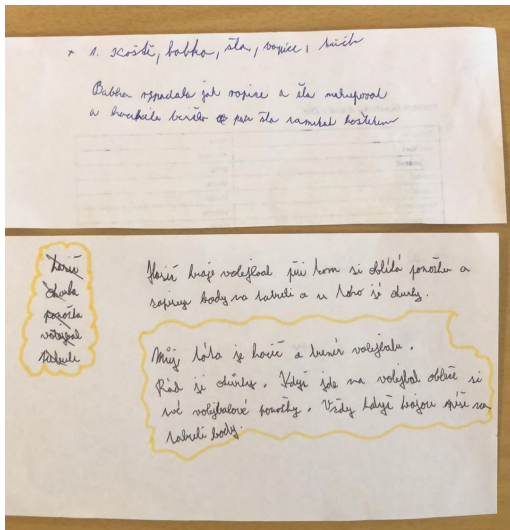 1. Koště, babka, šla, vopice, smích
Babka vypadala jak vopice a šla nakupovat
a koště pak šla zametat koštětem
hasič
okurka
ponožka
volejbal
tabuli
Hasič hraje volejbal při tom si obléká ponožku a
zapisuje body na tabuli a u toho jí okurky.
Můj táta je hasič a trenér volejbalu.
Rád jí okurky. Když jde na volejbal obleče si
své volejbalové ponožky. Vždy když hrajou píše na
tabuli body.